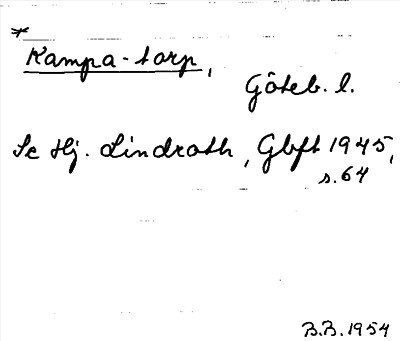 *
Kampa-torp,
Göteb. l.
Se Hj. Lindroth, Gbft 1945,
s. 64
B.B. 1954